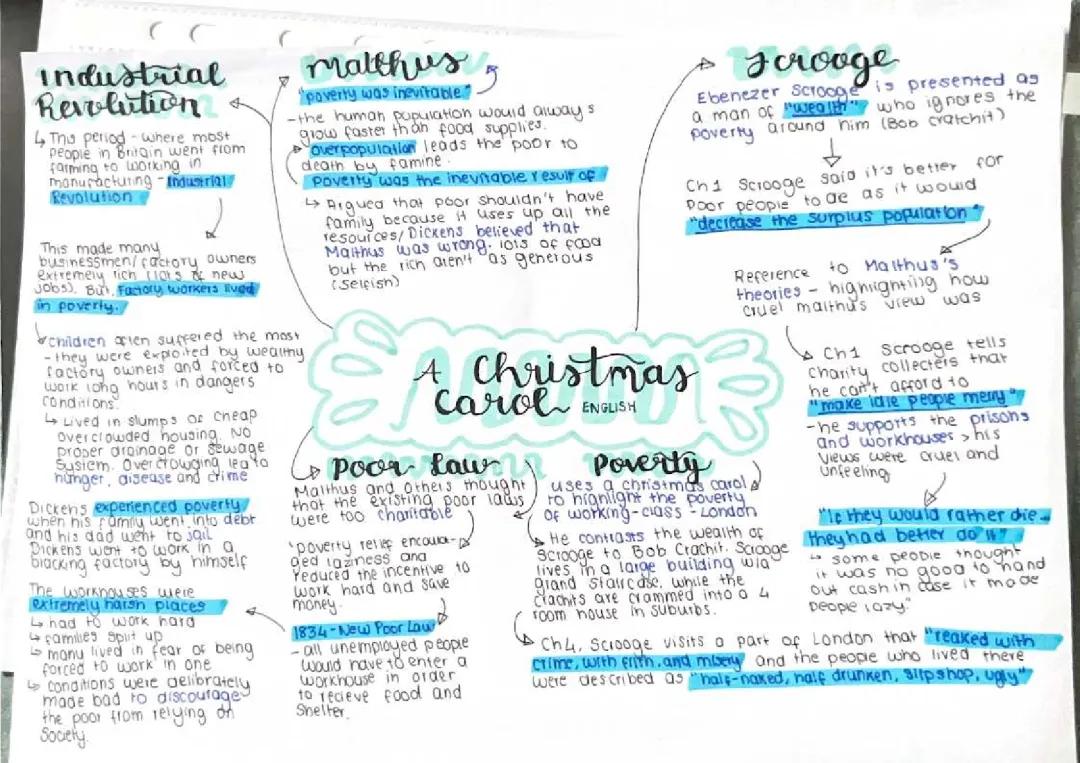 Industrial
Revolution
↳ This period - where most
people in Britain went from
farming to working in
manufacturing - Industrial
Revolution
This made many
businessmen/factory owners
extremely rich (lots & new
jobs). But, Factory workers lived
in poverty.
children often suffered the most
- they were exploited by wealthy
factory owners and forced to
work long hours in dangers
conditions.
↳ Lived in slumps of cheap
overcrowded housing. No
proper drainage or sewage
system. Overcrowding lead to
hunger, disease and crime
Dickens experienced poverty
when his family went into debt
and his dad went to jail
Dickens went to work in a
blacking factory by himself
The workhouses were
extremely harsh places
↳ had to work hard
↳ families split up
↳ many lived in fear of being
forced to work in one
↳ conditions were delibrately
made bad to discourage
the poor from relying on
society.
Malthus
"poverty was inevitable"
- the human population would always
grow faster than food supplies.
overpopulation leads the poor to
death by famine.
poverty was the inevitable result of
↳ Argued that poor shouldn't have
family because it uses up all the
resources/Dickens believed that
Malthus was wrong. lots of food
but the rich aren't as generous
(selfish)
A Christmas
Carol ENGLISH
Poor Law
Malthus and others thought
that the existing poor laws
were too charitable
'poverty relief encoura-
ged laziness and
reduced the incentive to
work hard and save
money.
1834 - New Poor Law
- all unemployed people
would have to enter a
workhouse in order
to recieve food and
shelter.
Poverty
uses a christmas carol
to highlight the poverty
of working-class - London
↳ He contrasts the wealth of
Scrooge to Bob Crachit. Scrooge
lives in a large building w/a
grand staircase, while the
Crachits are crammed into a 4
room house in suburbs.
Ch4, Scrooge visits a part of London that "reaked with
crime, with filth, and misery and the people who lived there
were described as "half-naked, half drunken, slipshop, ugly"
Scrooge
Ebenezer Scrooge is presented as
a man of "wealth" who ignores the
poverty around him (Bob Cratchit)
Ch1 Scrooge said it's better for
poor people to die as it would
"decrease the surplus population"
Reference to Malthus's
theories - highlighting how
cruel malthus view was
Ch1 Scrooge tells
charity collecters that
he can't afford to
"make idle people merry"
- he supports the prisons
and workhouses > his
views were cruel and
unfeeling
"If they would rather die..
they had better do it"
↳ some people thought
it was no good to hand
out cash in case it made
people lazy."